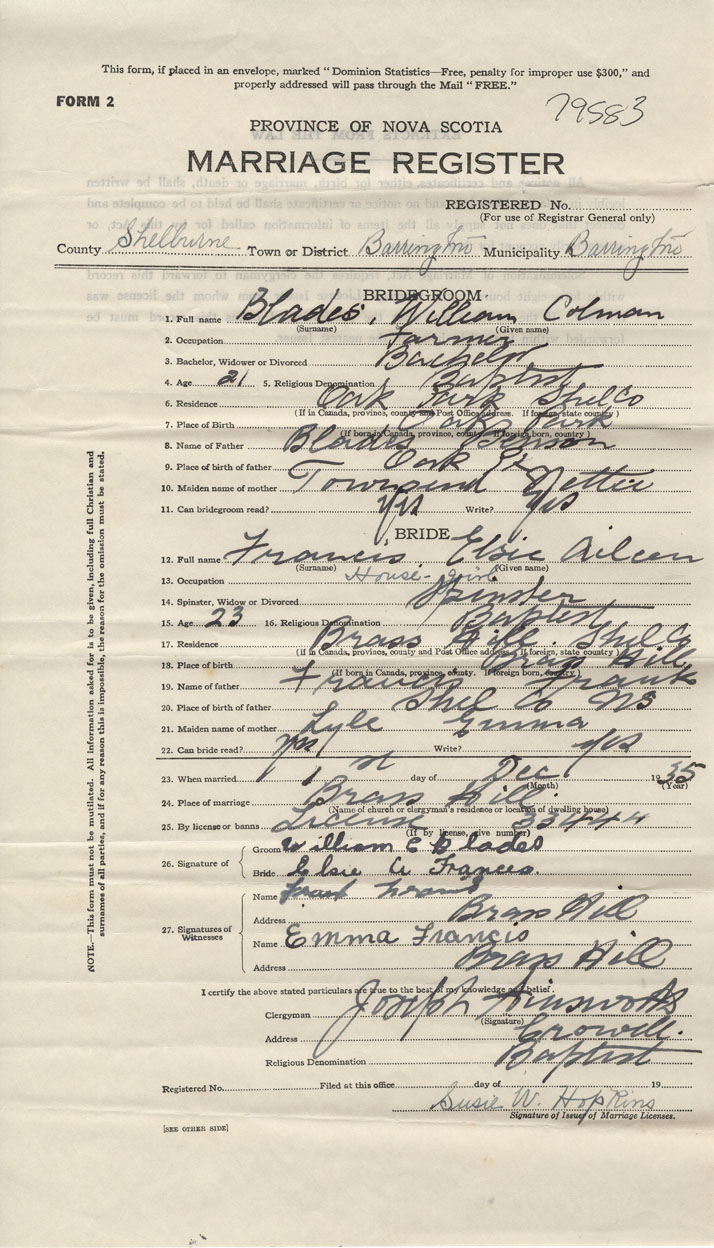 This form, if placed in an envelope, marked "Dominion Statistics—Free, penalty for improper use $300," and
properly addressed will pass through the Mail "FREE."
FORM 2
79583
PROVINCE OF NOVA SCOTIA
MARRIAGE REGISTER
REGISTERED No.
(For use of Registrar General only)
County Shelburne Town or District Barrington Municipality Barrington
BRIDEGROOM
1. Full name Blades, William Colman
(Surname) (Given name)
2. Occupation Farmer
3. Bachelor, Widower or Divorced Bachelor
4. Age 21 5. Religious Denomination Baptist
6. Residence Oak Park Shel Co
(If in Canada, province, county and Post Office address. If foreign, state country)
7. Place of Birth Oak Park
(If born in Canada, province, county. If foreign born, country)
8. Name of Father Blades
9. Place of birth of father Oak Pk
10. Maiden name of mother Townsend Nettie
11. Can bridegroom read? Yes Write? Yes
BRIDE
12. Full name Francis, Elsie Aileen
(Surname) (Given name)
13. Occupation House-girl
14. Spinster, Widow or Divorced Spinster
15. Age 23 16. Religious Denomination Baptist
17. Residence Brass Hill Shel Co
(if in Canada, province, county and Post Office address. If foreign, state country)
18. Place of birth Brass Hill
(If born in Canada, province, county. If foreign born, country)
19. Name of father Francis Frank
20. Place of birth of father Shel Co NS
21. Maiden name of mother Lyle Emma
22. Can bride read? Yes Write? Yes
23. When married 1st day of Dec 1935
(Month) (Year)
24. Place of marriage Brass Hill
(Name of church or clergyman's residence or location of dwelling house)
25. By license or banns License 33444
(If by license, give number)
26. Signature of
Groom William C Blades
Bride Elsie A Frances.
27. Signatures of Witnesses
Name Frank Francis
Address Brass Hill
Name Emma Francis
Address Brass Hill
I certify the above stated particulars are true to the best of my knowledge and belief.
Clergyman Joseph Ainsworth
(Signature)
Address Crowell.
Religious Denomination Baptist
Registered No. Filed at this office day of 19
Susie W. Hopkins
Signature of Issuer of Marriage Licenses.
[SEE OTHER SIDE]
NOTE.—This form must not be mutilated. All information asked for is to be given, including full Christian and
surnames of all parties, and if for any reason this is impossible, the reason for the omission must be stated.